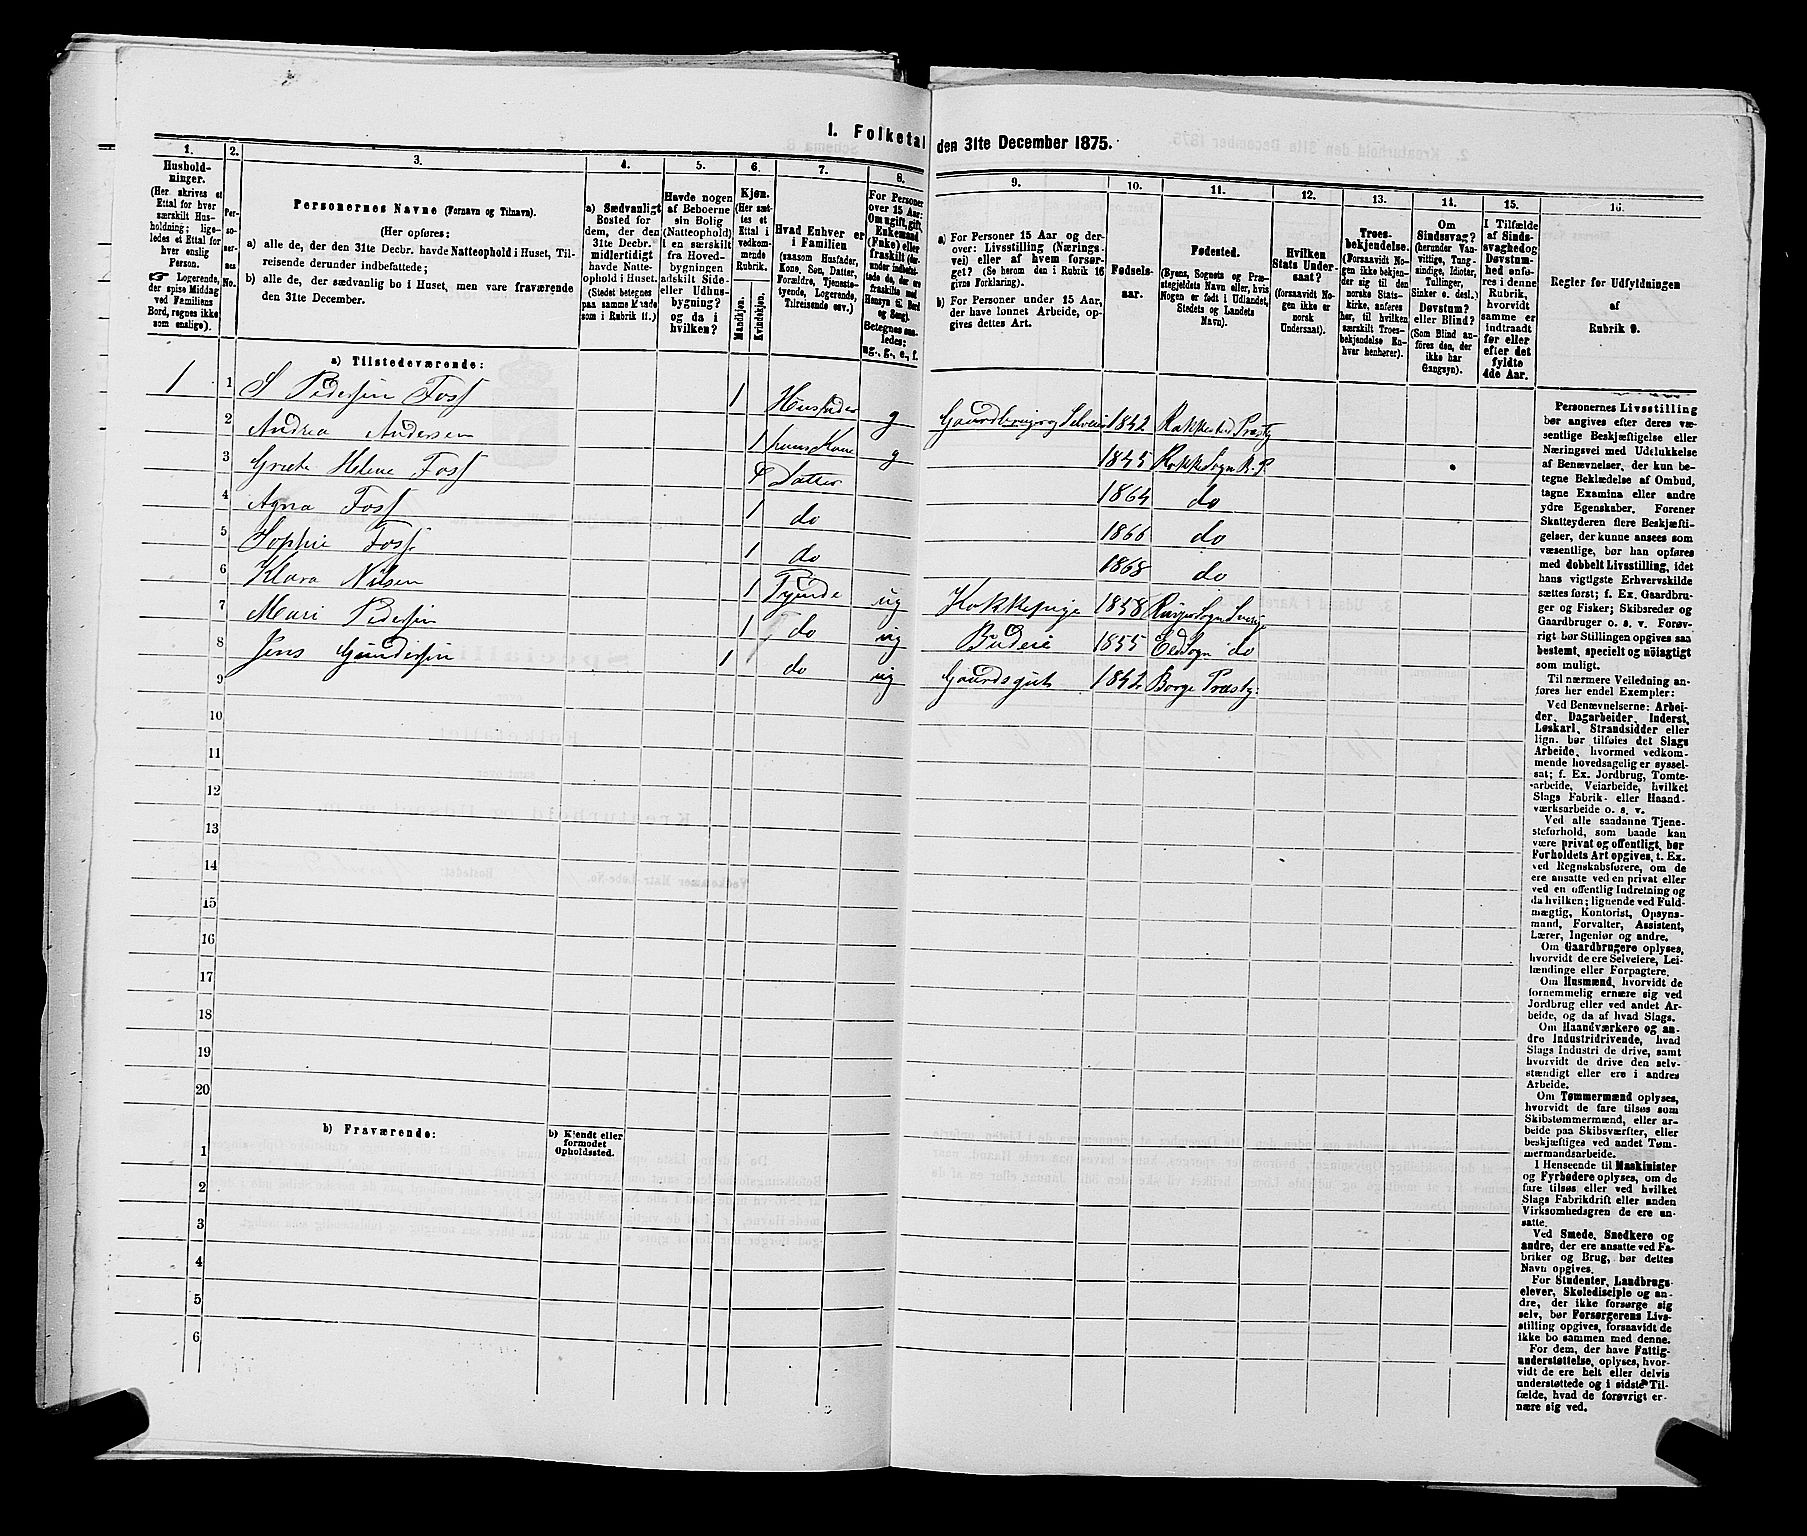 1. Folketal den 31te December 1875.
1. 2. 3. 4. 5. 6. 7. 8. 9. 10. 11. 12. 13. 14. 15. 16.
Hushold-
ninger.
(Her skrives et
Ettal for hver
særskilt Hus-
holdning; lige-
ledes et Ettal for
hver enslig
Person.
☞ Logerende,
der spise Middag
ved Familiens
Bord, regnes ikke
som enslige).
Per-
so-
ner-
nes
No.
Personernes Navne (Fornavn og Tilnavn).
(Her opføres:
a) alle de, der den 31te Decbr. havde Natteophold i Huset, Til-
reisende derunder indbefattede;
b) alle de, der sædvanlig bo i Huset, men vare fraværende
den 31te December.
a) Sædvanligt
Bosted for
dem, der den
31te Decbr.
midlertidigt
havde Natte-
ophold i Huset.
(Stedet betegnes
paa samme Maade
som i Rubrik 11.)
Havde nogen
af Beboerne
sin Bolig
(Natteophold)
i en særskilt
fra Hoved-
bygningen
adskilt Side-
eller Udhus-
bygning?
og da i
hvilken?
Kjøn.
(Her sæt-
tes et
Ettal i
vedkom-
mende
Rubrik.
Mandkjøn.
Kvindekjøn.
Hvad Enhver er
i Familien
(saasom Husfader,
Kone, Søn, Datter,
Forældre, Tjeneste-
tyende, Logerende,
Tilreisende osv.)
For Personer
over 15 Aar:
Om ugift, gift,
Enkemand
(Enke) eller
fraskilt
Betegnes saa-
ledes:
ug., g., e., f.
a) For Personer 15 Aar og der-
over: Livsstilling (Nærings-
vei) eller af hvem forsør-
get? (Se herom den i Rubrik 16
givs Forklaring).
b) For Personer under 15 Aar,
der have lønnet Arbeide, op-
gives dettes Art.
Fødsels-
aar.
Fødested.
(Byens, Sognets og Præ-
stegjeldets Navn eller, hvis
Nogen er født i Udlandet,
Stedets og Landets
Navn).
Hvilken
Stats Under-
saat?
(forsaavidt No-
gen ikke er
norsk
Undersaat).
Troes-
bekjendelse.
(Forsaavidt No-
gen ikke bekjen-
der sig til den
norske Stats-
kirke, anføres
her, til hvilken
særskilt Troes-
bekjendelse En-
hver henhører).
Om
Sindssvag?
(herunder Van-
vittige, Tung-
sindige, Idioter,
Tullinger,
Sinker o. desl.)
Døvstum?
eller Blind?
(Som Blind an-
føres den, der
ikke har
Gangsyn).
I Tilfælde
af Sinds-
svaghed og
Døvstum-
hed anfø-
res i denne
Rubrik,
hvorvidt
samme er
indtraadt
før eller
efter det
fyldte
4de Aar.
Regler for Udfyldningen
af
Rubrik 9.
a) Tilstedeværende:
1 1 S Pedersen Foss 1 Husfader g Gaardbruger Selveier 1842 Rakkestad Præstg
2 Andrea Andersen 1 hans Kone g 1845 Rokke Sogn R. P.
3 Grete Helene Foss 1 Datter 1864 do
4 Agna Foss 1 do 1866 do
5 Sophie Foss. 1 do 1868 do
6 Klara Nilsen 1 Tyende ug Kokkepige 1858 Sogn Sverige
7 Mari Pedersen 1 do ug Budeie 1855 Ed Sogn do
8 Jens Gundersen 1 do ug Gaardsgut 1842 Borge Præstg:
9
10
11
12
13
14
15
16
17
18
19
20
b) Fraværende:
b) Kjendt eller
formodet
Opholdssted.
1
2
3
4
5
6
Personernes Livsstilling
bør angives efter deres væ-
sentlige Beskjæftigelse eller
Næringsvei med Udelukkelse
af Benævnelser, der kun be-
tegne Beklædelse af Ombud,
tagne Examina eller andre
ydre Egenskaber. Forener
Skatteyderen flere Beskjæfti-
gelser, der kunne ansees som
væsentlige, bør han opføres
med dobbelt Livsstilling, idet
hans vigtigste Erhvervskilde
sættes først; f. Ex. Gaardbru-
ger og Fisker; Skibsreder og
Gaardbruger o. s. v. Forøv-
rigt bør Stillingen opgives saa
bestemt, specielt og nøiagtigt
som muligt.
Til nærmere Veiledning an-
føres her endel Exempler:
Ved Benævnelserne: Arbei-
der, Dagarbeider, Inderst,
Løskarl, Strandsidder eller
lign. bør tilføies det Slags
Arbeide, hvormed vedkom-
mende hovedsagelig er syssel-
sat; f. Ex. Jordbrug, Tomte-
arbeide, Veiarbeide, hvilket
Slags Fabrik- eller Haand-
værksarbeide o. s. v.
Ved alle saadanne Tjene-
steforhold, som baade kan
være privat og offentligt, bør
Forholdets Art opgives, t. Ex.
ved Regnskabsførere, om de
ere ansatte ved en privat eller
ved en offentlig Indretning og
da hvilken; lignende ved Fuld-
mægtig, Kontorist, Opsyns-
mand, Forvalter, Assistent,
Lærer, Ingeniør og andre.
Om Gaardbrugere oplyses,
hvorvidt de ere Selveiere, Lei-
lændinge eller Forpagtere.
Om Husmænd, hvorvidt de
fornemmelig ernære sig ved
Jordbrug eller ved andet Ar-
beide, og da af hvad Slags.
Om Haandværkere og an-
dre Industridrivende, hvad
Slags Industri de drive, samt
hvorvidt de drive den selv-
stændigt eller ere i andres
Arbeide.
Om Tømmermænd oplyses,
hvorvidt de fare tilsøs som
Skibstømmermænd, eller ar-
beide paa Skibsværfter, eller
beskjæftiges ved andet Tøm-
mermandsarbeide.
I Henseende til Maskinister
og Fyrbødere oplyses, om de
fare tilsøs eller ved hvilket
Slags Fabrikdrift eller anden
Virksomhedsgren de ere an-
satte.
Ved Smede, Snedkere og
andre, der ere ansatte ved Fa-
briker og Brug, bør dettes
Navn opgives.
For Studenter, Landbrugs-
elever, Skoledisciple og an-
dre, der ikke forsørge sig
selv, bør Forsørgerens Livs-
stilling opgives, forsaavidt de
ikke bo sammen med denne.
For dem, der have Fattig-
understøttelse, oplyses, hvor-
vidt de ere helt eller delvis
understøttede og i sidste Til-
fælde, hvad de forøvrigt er-
nære sig ved.